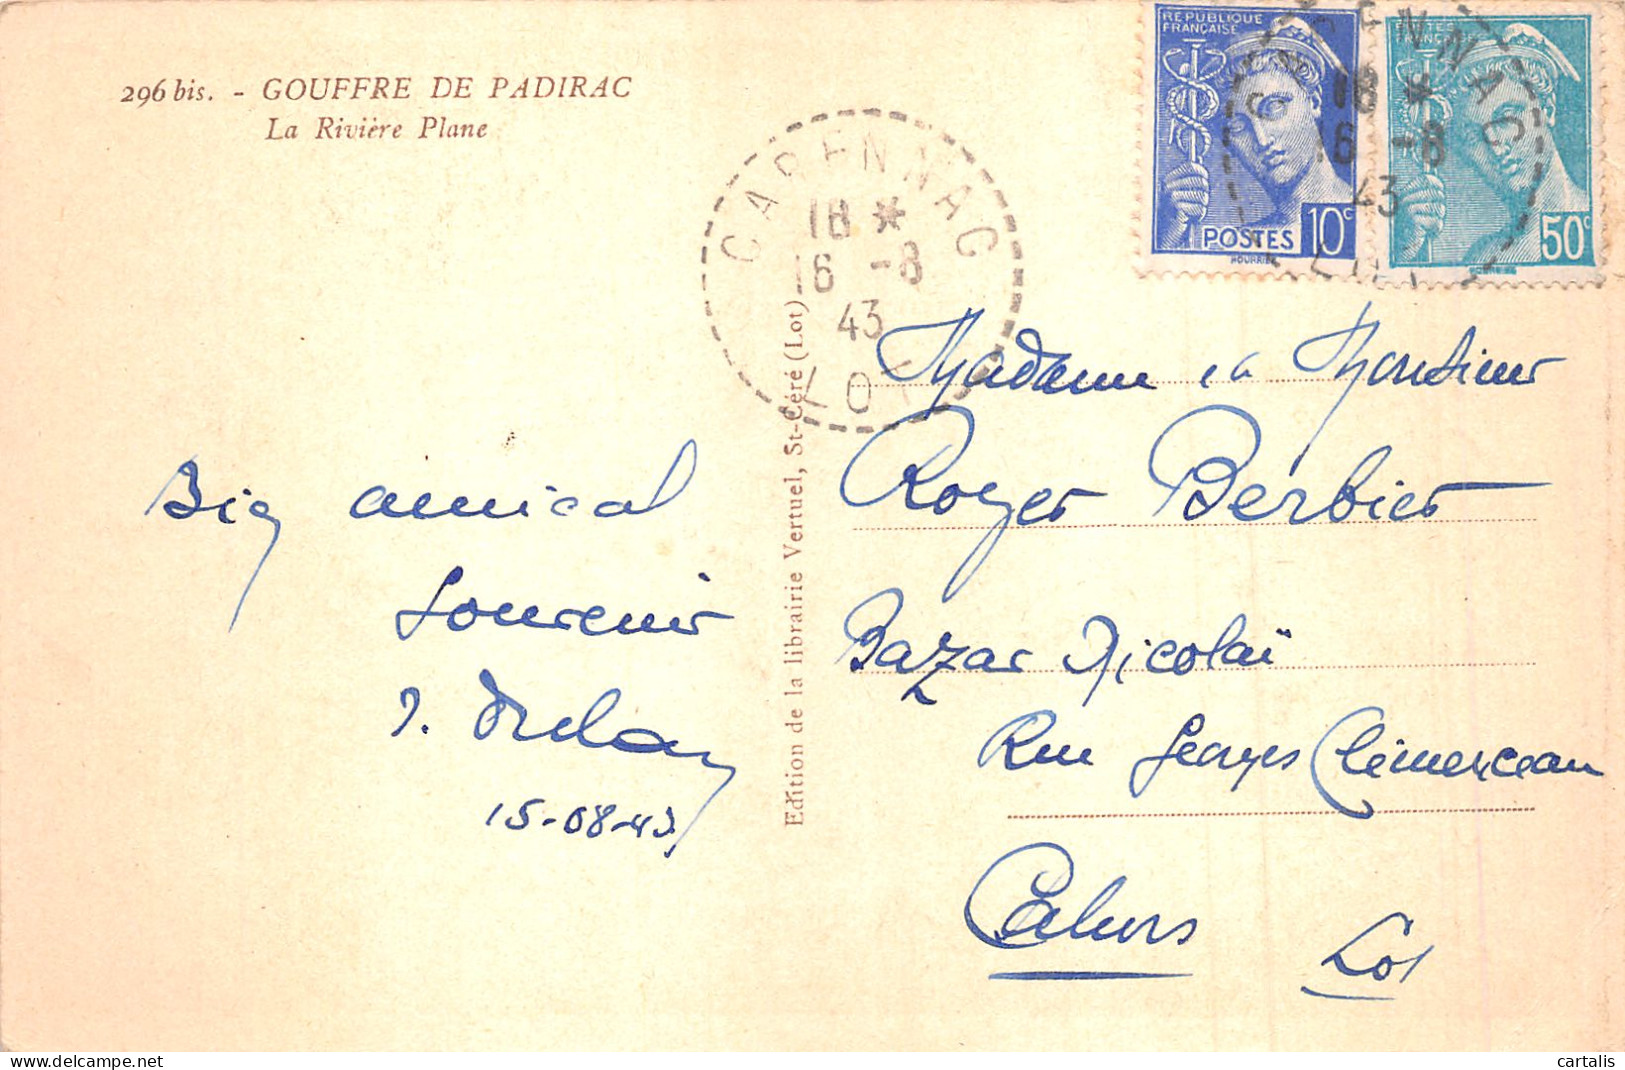 296 bis. - GOUFFRE DE PADIRAC
La Rivière Plane
RÉPUBLIQUE
FRANÇAISE
POSTES 10c
50c
CARENNAC
18 *
16 -8
43
LOT
CARENNAC
18 *
16 -8
43
LOT
Edition de la librairie Vertuel, St-Céré (Lot)
Bien amical
souvenir
15-08-43
Madame et Monsieur
Roger Berbier
Bazar Nicolaï
Rue Georges Clémenceau
Cahors
Lot
cartalis